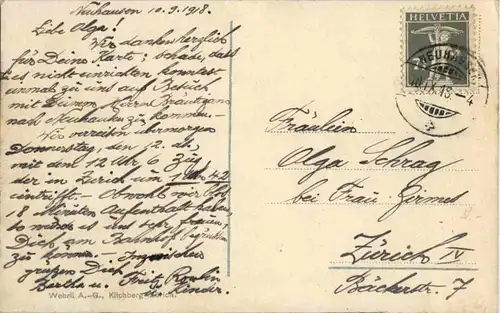 Neuhausen 10.9.1918.
Liebe Olga!
Wir danken herzlich
für Deine Karte; schade, dass
es nicht einrichten konntest
einmal zu uns auf Besuch
mit Deinem Herrn Bräutigam
nach Neuhausen zu kommen.—
Wir verreisen übermorgen
Donnerstag, den 12. ds.
mit dem 12 Uhr 6 Zug
der in Zürich um 1 Uhr 42
eintrifft.— Obwohl wir
18 Minuten Aufenthalt haben,
so würde es uns sehr freuen,
Dich am Bahnhof begrüssen
zu können.— Inzwischen
grüssen Dich
Bertha u. Fritz
u. Kinder.
Wehrli A.-G., Kilchberg-Zürich.
HELVETIA
NEUHAUSEN
Fräulein
Olga Schrag
bei Frau Firmes
Zürich IV
Bäckerstr. 7